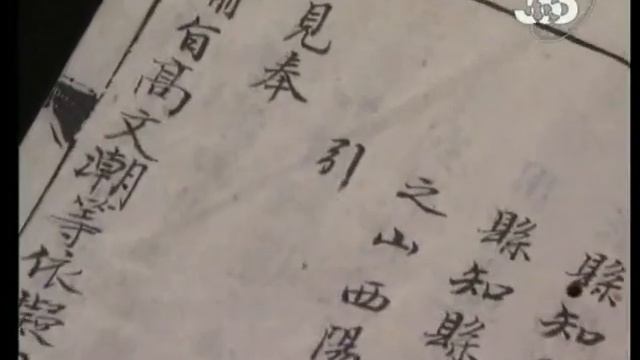 縣知
縣知縣
之山西陽
引
見奉
旨高文潮等依擬